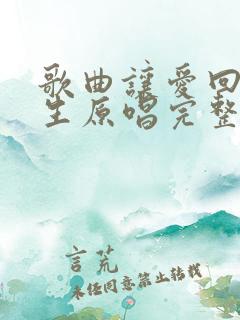 歌曲讓愛回
生原唱完整
言荒
未经同意禁止转载